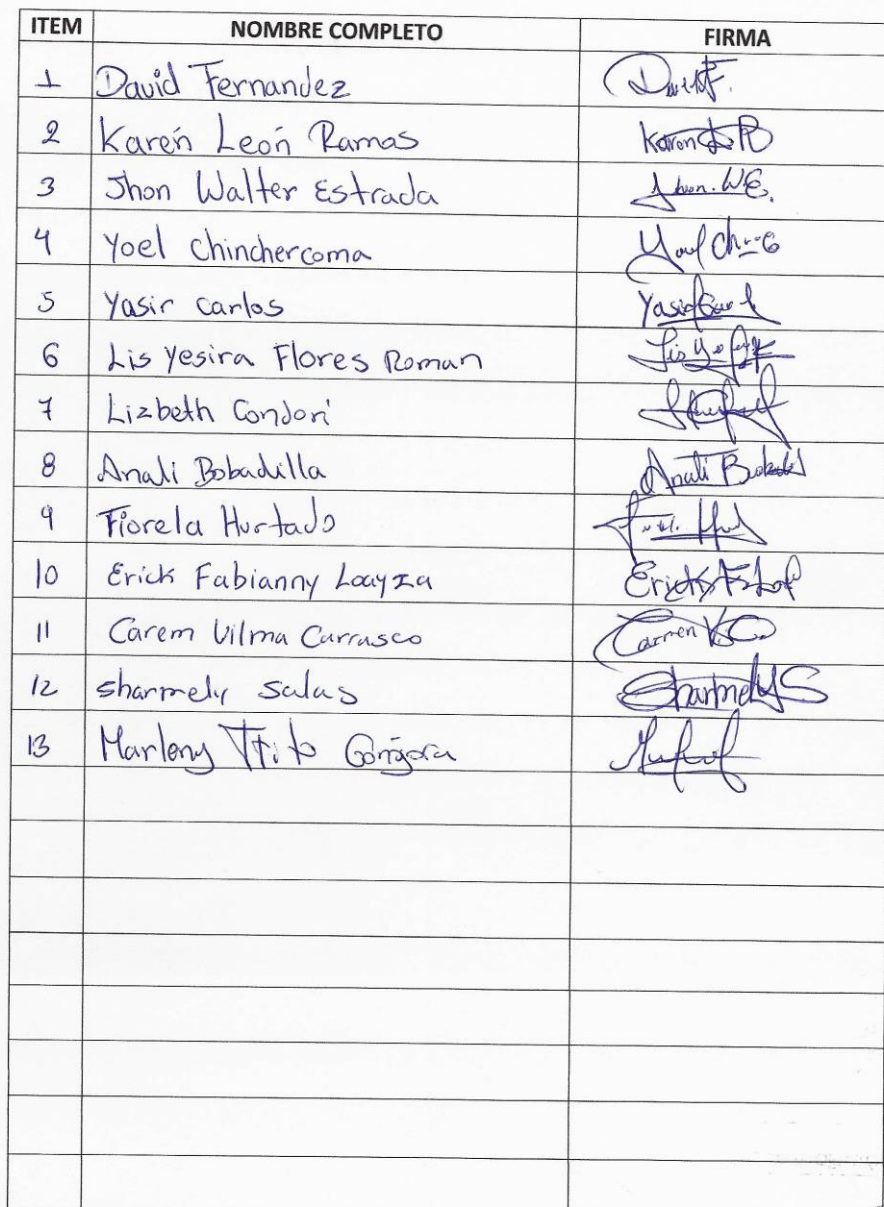 ITEM NOMBRE COMPLETO FIRMA
1 David Fernandez David F.
2 Karen León Ramos Karen
3 Jhon Walter Estrada Jhon. W.E.
4 Yoel Chinchercoma
5 Yasir Carlos Yasir
6 Lis Yesira Flores Roman Lis
7 Lizbeth Condori
8 Anali Bobadilla Anali
9 Fiorela Hurtado
10 Erick Fabianny Loayza Erick
11 Carem Vilma Carrasco Carmen
12 Sharmely Salas Sharmely S
13 Marleny Ttito Góngora